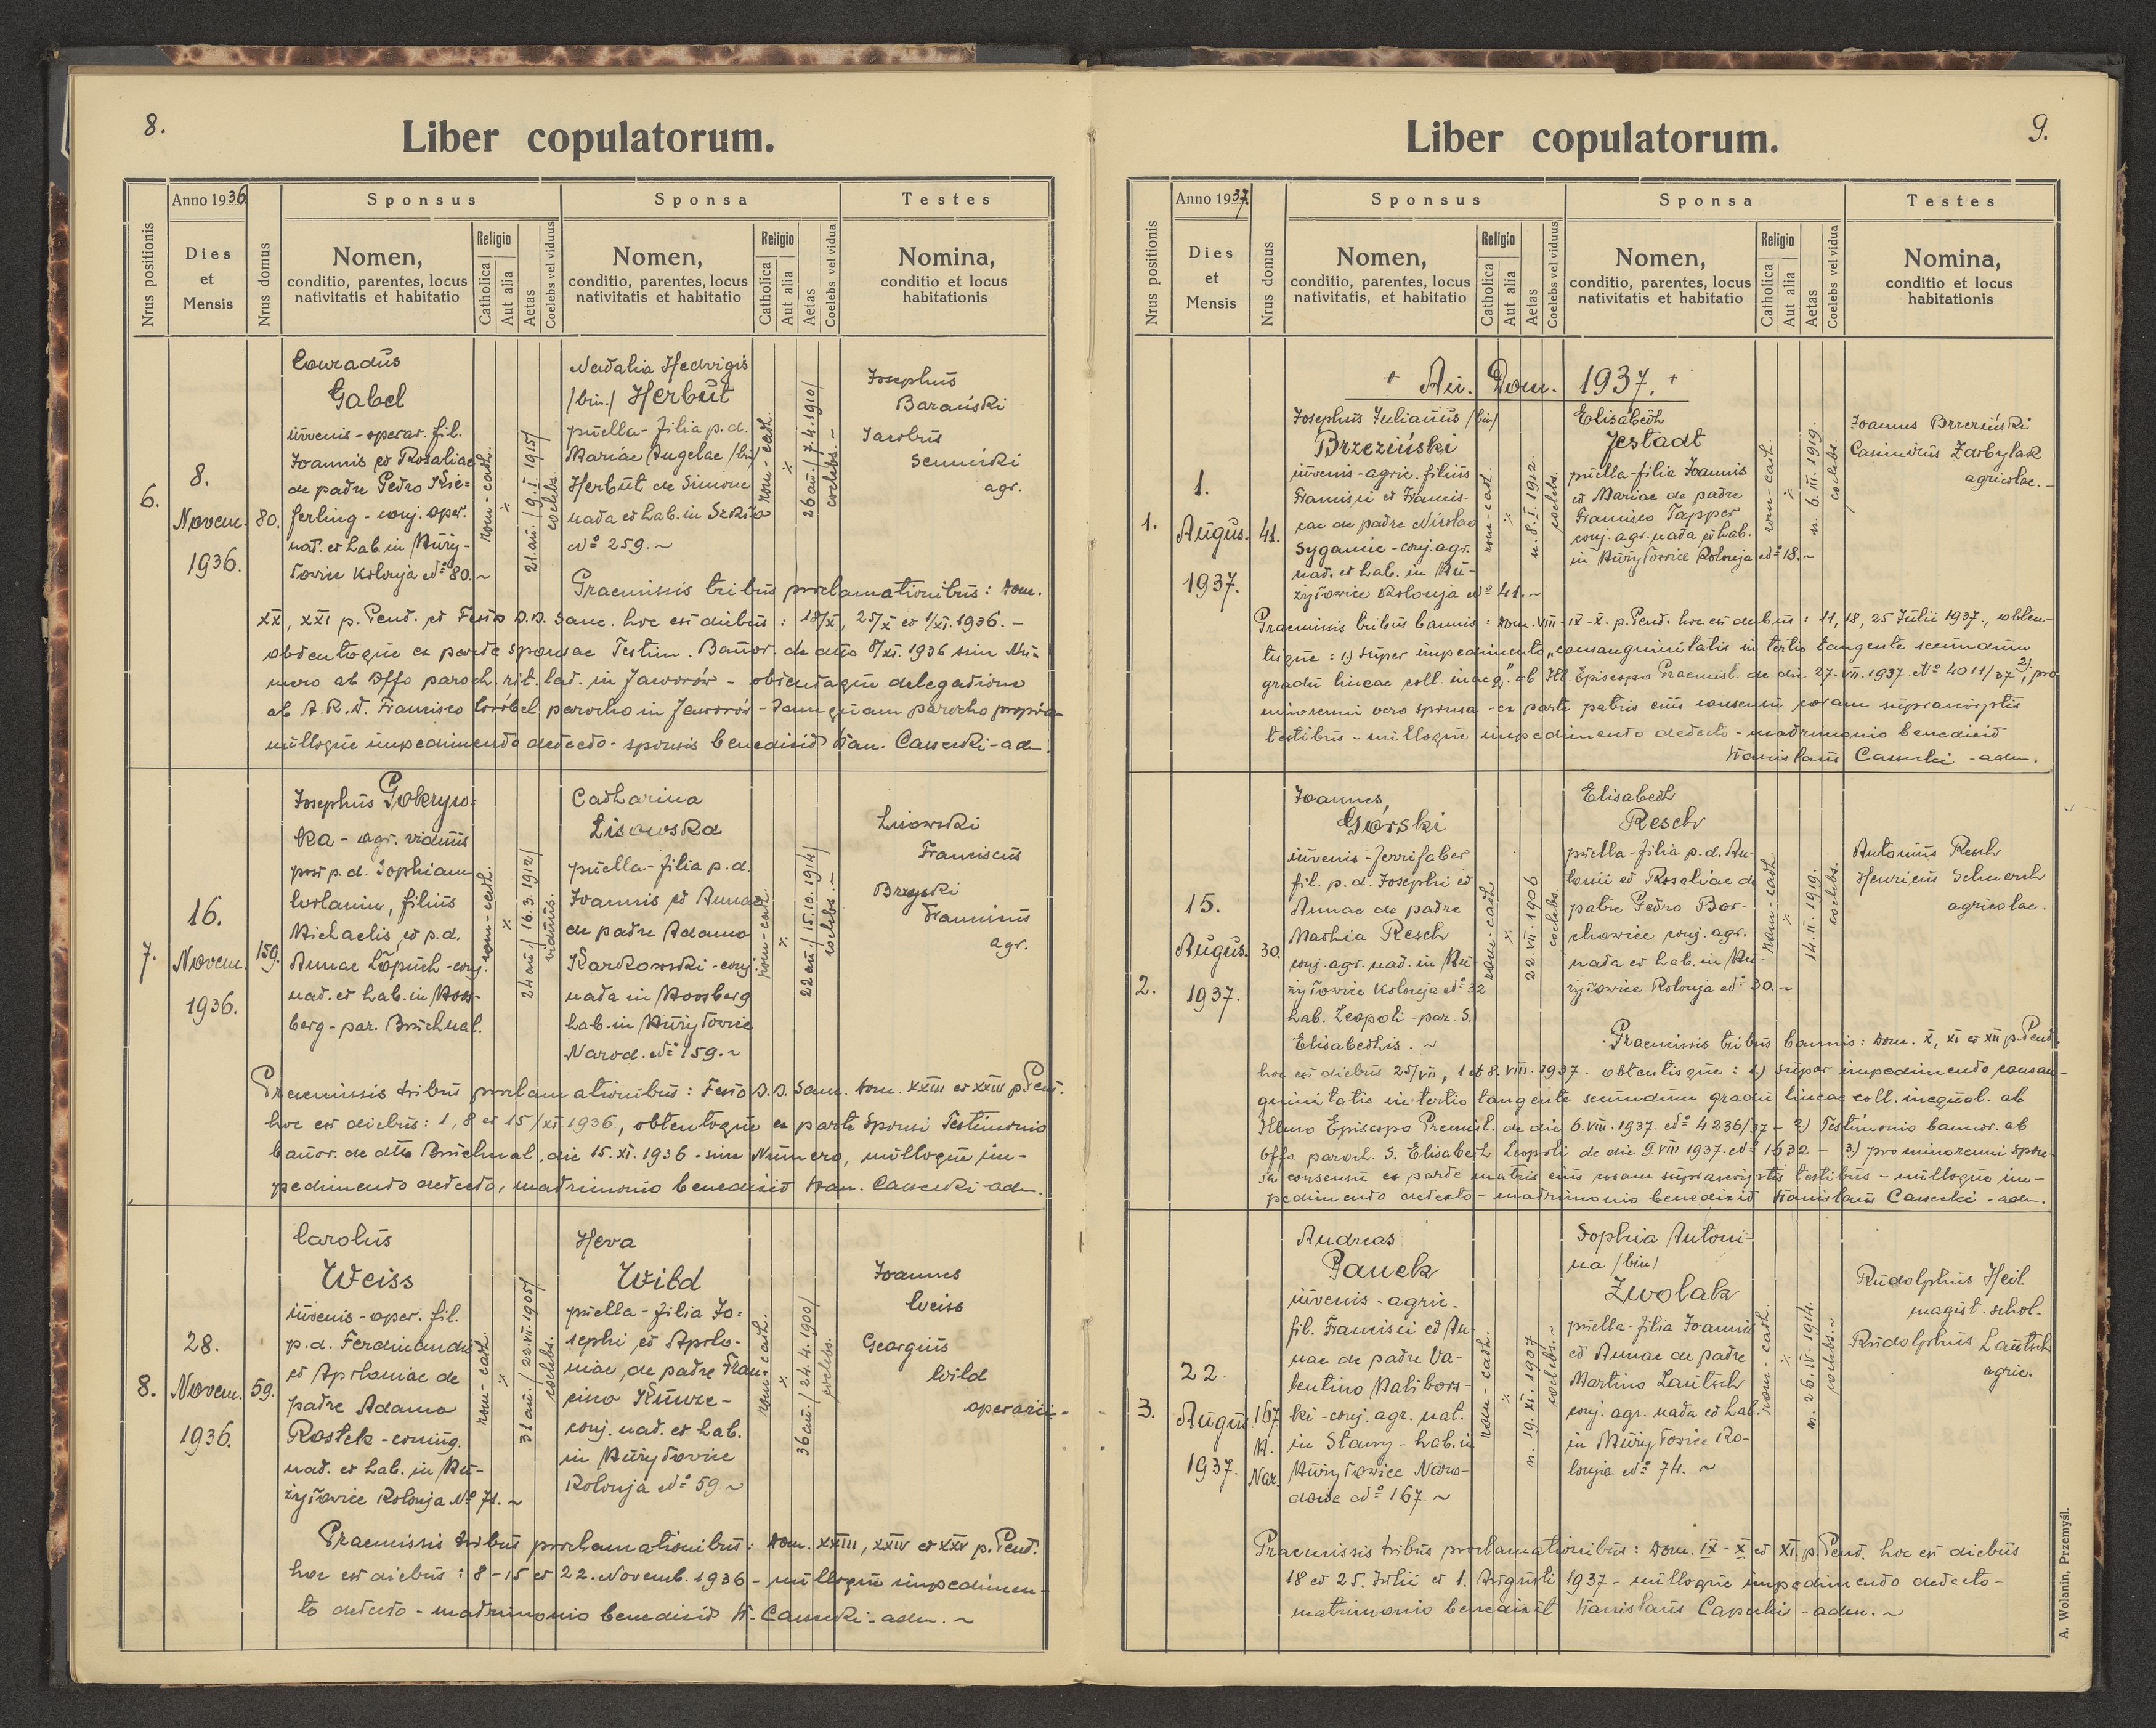 8.
Liber copulatorum.
Nrus positionis
Anno 1936
Dies
et
Mensis
Nrus domus
Sponsus
Nomen,
conditio, parentes, locus
nativitatis et habitatio
Religio
Catholica
Aut alia
Aetas
Coelebs vel viduus
Sponsa
Nomen,
conditio, parentes, locus
nativitatis et habitatio
Religio
Catholica
Aut alia
Aetas
Coelebs vel vidua
Testes
Nomina,
conditio et locus
habitationis
6.
8.
Novem.
1936.
80.
Conradus
Gabel
iuvenis - operar. fil.
Joannis et Rosaliae
de patre Petro Kie=
ferling - conj. oper.
nat. et hab. in Muży-
łowice Kolonja No 80. ~
rom-cath.
21 an. / 9. I. 1915/
coelebs.
Natalia Hedvigis
/bin./ Herbut
puella - filia p. d.
Mariae Angelae /bin/
Herbut de Simone
nata et hab. in Szkło
No 259. ~
rom-cath.
26 an. / 7. 4. 1910/
coelebs. ~
Josephus
Barański
Jacobus
agr.
Praemissis tribus proclamationibus: Dom.
XX, XXI p. Pent. et Festo D.D. Sanc. hoc est diebus: 18/X, 25/X et 1/XI. 1936. -
obtentoque ex parte sponsae Testim. Banor. de dato 8/XI. 1936 sine Nu-
mero ab Offo paroch. rit. lat. in Jaworów - obtentaque delegatione
ab A. R. D. Francisco Wróbel parocho in Jaworów - tamquam parocho proprio
nulloque impedimento detecto - sponsis benedixit Stan. - adm.
7.
16.
Novem.
1936.
159.
Josephus Pokryw=
ka - agr. viduus
post p. d. Sophiam
Wolanin, filius
Michaelis et p. d.
Annae Łopuch - conj.
nat. et hab. in Moos-
berg - par. Bruchnal.
rom-cath.
24 an / 16. 3. 1912/
viduus.
Catharina
Lisowska
puella - filia p. d.
Joannis et Annae
de patre Adamo
Karkowski - conj.
nata in Moosberg
hab. in Mużyłowice
Narod. No 159. ~
rom-cath.
22 an. / 15. 10. 1914/
coelebs. ~
Lisowski
Franciscus
Franciscus
agr.
Praemissis tribus proclamationibus: Festo D.D. Sanc. Dom. XXIII et XXIV p. Pent.
hoc est diebus: 1, 8 et 15/XI 1936, obtentoque ex parte Sponsi Testimonio
banor. de dto Bruchnal, die 15. XI. 1936 - sine Numero, nulloque im-
pedimento detecto, matrimonio benedixit Stan. - adm.
8.
28.
Novem.
1936.
59.
Carolus
Weiss
iuvenis - oper. fil.
p. d. Ferdinandi
et Apoloniae de
patre Adamo
Rostek - coniug.
nat. et hab. in Mu-
żyłowice Kolonja No 71. ~
rom-cath.
31 an. / 22. VII. 1905/
coelebs.
Heva
Wild
puella - filia Jo=
sephi et Apolo-
niae, de patre Fran
cisco Kunze -
conj. nat. et hab.
in Mużyłowice
Kolonja No 59 ~
rom-cath.
36 an. / 24. 4. 1900/
coelebs.
Joannes
Weiss
Georgius
Wild
operarii. -
Praemissis tribus proclamationibus: Dom. XXIII, XXIV et XXV p. Pent.
hoc est diebus: 8 - 15 et 22. Novemb. 1936 - nulloque impedimen-
to detecto - matrimonio benedixit St. - adm. ~
9.
Liber copulatorum.
Nrus positionis
Anno 1937.
Dies
et
Mensis
Nrus domus
Sponsus
Nomen,
conditio, parentes, locus
nativitatis, et habitatio
Religio
Catholica
Aut alia
Aetas
Coelebs vel viduus
Sponsa
Nomen,
conditio, parentes, locus
nativitatis et habitatio
Religio
Catholica
Aut alia
Aetas
Coelebs vel vidua
Testes
Nomina,
conditio et locus
habitationis
+ An. Dom. 1937. +
1.
1.
Augus.
1937.
41.
Josephus Julianus /bin/
Brzeziński
iuvenis - agric. filius
Francisci et Francis-
cae de patre Nicolao
Syganic - conj. agr.
nat. et hab. in Mu-
żyłowice Kolonja No 41. ~
rom-cat.
n. 8. I. 1912.
coelebs.
Elisabeth
Jestadt
puella - filia Joannis
et Mariae de patre
Francisco Tapper
conj. agr. nata et hab.
in Mużyłowice Kolonja No 18. ~
rom-cath.
n. 6. III. 1919.
coelebs.
Joannes Brzeziński
Casimirus Zarbylak
agricolae. -
Praemissis tribus bannis: Dom. VIII - IX - X. p. Pent. hoc est diebus: 11, 18, 25 Julii 1937., obten-
tisque: 1) super impedimento „consanguinitatis in tertio tangente secundum
gradu lineae coll. inaeq." ab Ill. Episcopo Praemisl. de die 27. VII. 1937. No 4011/37; 2) pro
minorenni vero sponsa - ex parte patris eius consensu coram suprascriptis
testibus - nulloque impedimento detecto - matrimonio benedixit
Stanislaus - adm.
2.
15.
Augus.
1937.
30.
Joannes,
Gorski
iuvenis - ferrifaber
fil. p. d. Josephi et
Annae de patre
Mathia Resch
conj. agr. nat. in Mu-
żyłowice Kolonja No 32
hab. Leopoli - par. S.
Elisabethis. ~
rom-cath.
22. VII. 1906
coelebs.
Elisabeth
Resch
puella - filia p. d. An-
tonii et Rosaliae de
patre Petro Bor-
chowice conj. agr.
nata et hab. in Mu-
żyłowice Kolonja No 30. ~
rom-cath.
14. II. 1919.
coelebs.
Antonius Resch
Henricus
agricolae.
Praemissis tribus bannis: Dom. X, XI et XII p. Pent.
hoc est diebus 25/VII, 1 et 8. VIII. 1937. obtentisque: 1) super impedimento consan-
guinitatis in tertio tangente secundum gradu lineae coll. inequal. ab
Illmo Episcopo Premisl. de die 6. VIII. 1937. No 4236/37 - 2) Testimonio bannor. ab
Offo paroch. S. Elisabeth Leopoli de die 9. VIII 1937. No 1632 - 3) pro minorenni spon-
sa consensu ex parte matris eius coram suprascriptis testibus - nulloque im-
pedimento detecto - matrimonio benedixit Stanislaus - adm.
3.
22.
Augus.
1937.
167
M.
Nar.
Andreas
Panek
iuvenis - agric.
fil. Francisci et An-
nae de patre Va-
lentino Malibors-
ki - conj. agr. nat.
in Stawy - hab. in
Mużyłowice Naro-
dowe No 167. ~
rom-cath.
n. 19. XI. 1907
coelebs. ~
Sophia Antoni-
na /bin/
Zwolak
puella - filia Joannis
et Annae de patre
Martino Lautsch
conj. agr. nata et hab.
in Mużyłowice Ko-
lonja No 74. ~
rom-cath.
n. 26. IV. 1914.
coelebs. ~
Rudolphus Heil
magist. schol.
Rudolphus Lautsch
agric.
Praemissis tribus proclamationibus: Dom. IX - X et XI. p. Pent. hoc est diebus
18 et 25. Julii et 1. Augusti 1937 - nulloque impedimento detecto -
matrimonio benedixit Stanislaus - adm. ~
A. Wolanin, Przemyśl.